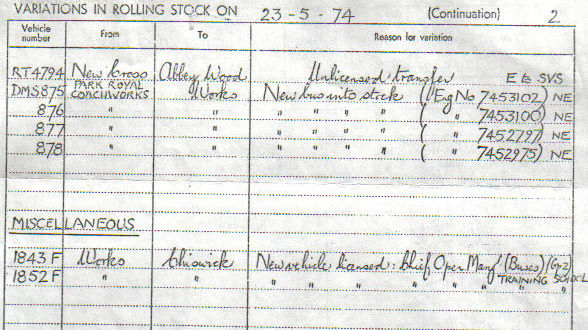 VARIATIONS IN ROLLING STOCK ON 23-5-74 (Continuation) 2
Vehicle number From To Reason for variation
RT4794 New Cross Abbey Wood Unlicensed transfer E to SVS
DMS875 PARK ROYAL COACHWORKS Works New bus into stock (Eng No 7453102) NE
876 " " " " " " ( " 7453100) NE
877 " " " " " " ( " 7452797) NE
878 " " " " " " ( " 7452975) NE
MISCELLANEOUS
1843F Works Chiswick New vehicle licensed: Chief Oper Mang'. (Buses) (Gp2)
1852F " " " " " " " " " TRAINING SCHOOL